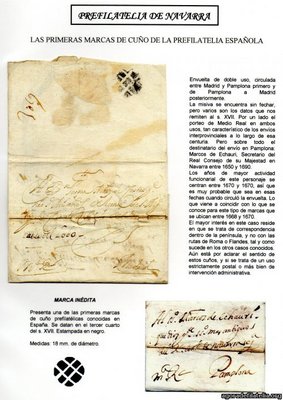 PREFILATELIA DE NAVARRA
LAS PRIMERAS MARCAS DE CUÑO DE LA PREFILATELIA ESPAÑOLA
Envuelta de doble uso, circulada
entre Madrid y Pamplona primero y
de Pamplona a Madrid
posteriormente.
La misiva se encuentra sin fechar,
pero varios son los datos que nos
remiten al s. XVII. Por un lado el
porteo de Medio Real en ambos
usos, tan característico de los envíos
interprovinciales a lo largo de esa
centuria. Pero sobre todo el
destinatario del envío en Pamplona:
Marcos de Echauri, Secretario del
Real Consejo de su Majestad en
Navarra entre 1650 y 1690.
Los años de mayor actividad
funcionarial de este personaje se
centran entre 1670 y 1670, así que
es muy probable que sea en esas
fechas cuando circuló la envuelta. Lo
que viene a coincidir con lo que se
conoce para este tipo de marcas que
se ubican entre 1668 y 1670.
El mayor interés en este caso reside
en que se trata de correspondencia
dentro de la península, y no con las
rutas de Roma o Flandes, tal y como
sucede en los otros casos conocidos.
Aún está por aclarar el sentido de
estos cuños, y si se trata de un uso
estrictamente postal o más bien de
intervención administrativa.
MARCA INÉDITA
Presenta una de las primeras marcas
de cuño prefilatélicas conocidas en
España. Se datan en el tercer cuarto
del s. XVII. Estampada en negro.
Medidas: 18 mm. de diámetro
Pamplona
agoradefilatelia.org